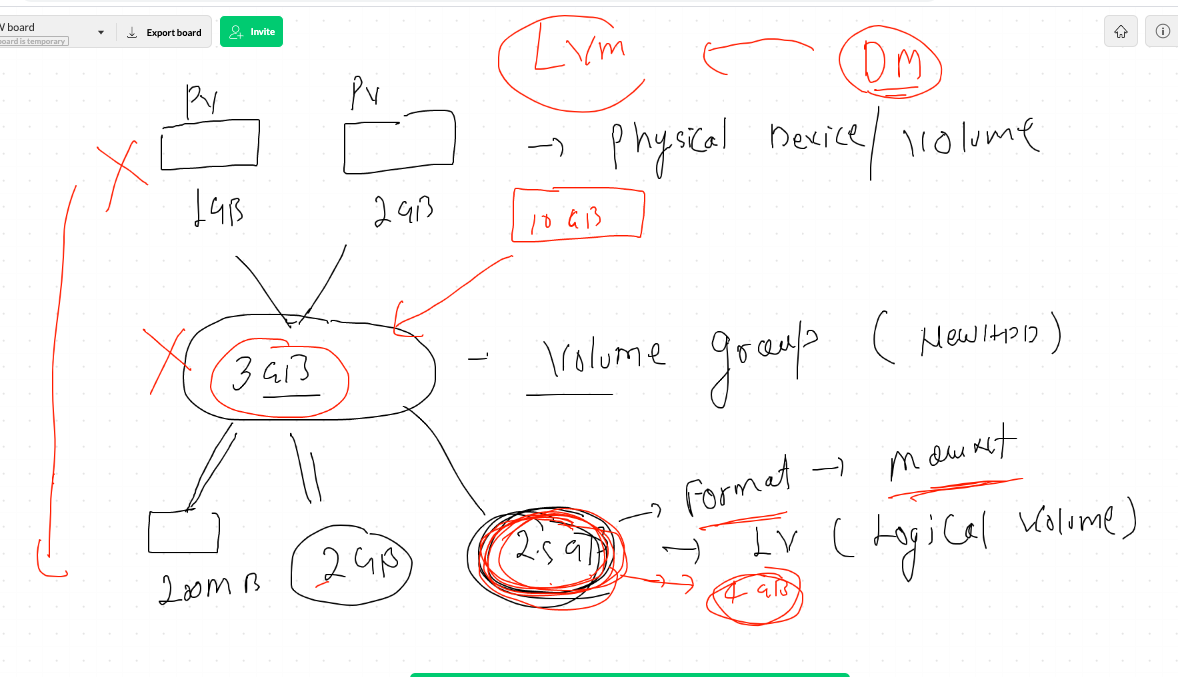 V board
board is temporary
Export board
Invite
LVM
DM
PV
PV
→ Physical Device/Volume
1GB
2GB
10 GB
3 GB
- Volume group (New HDD)
→ Format → Mount
2.5 GB
→ LV (Logical Volume)
200MB
2GB
4 GB